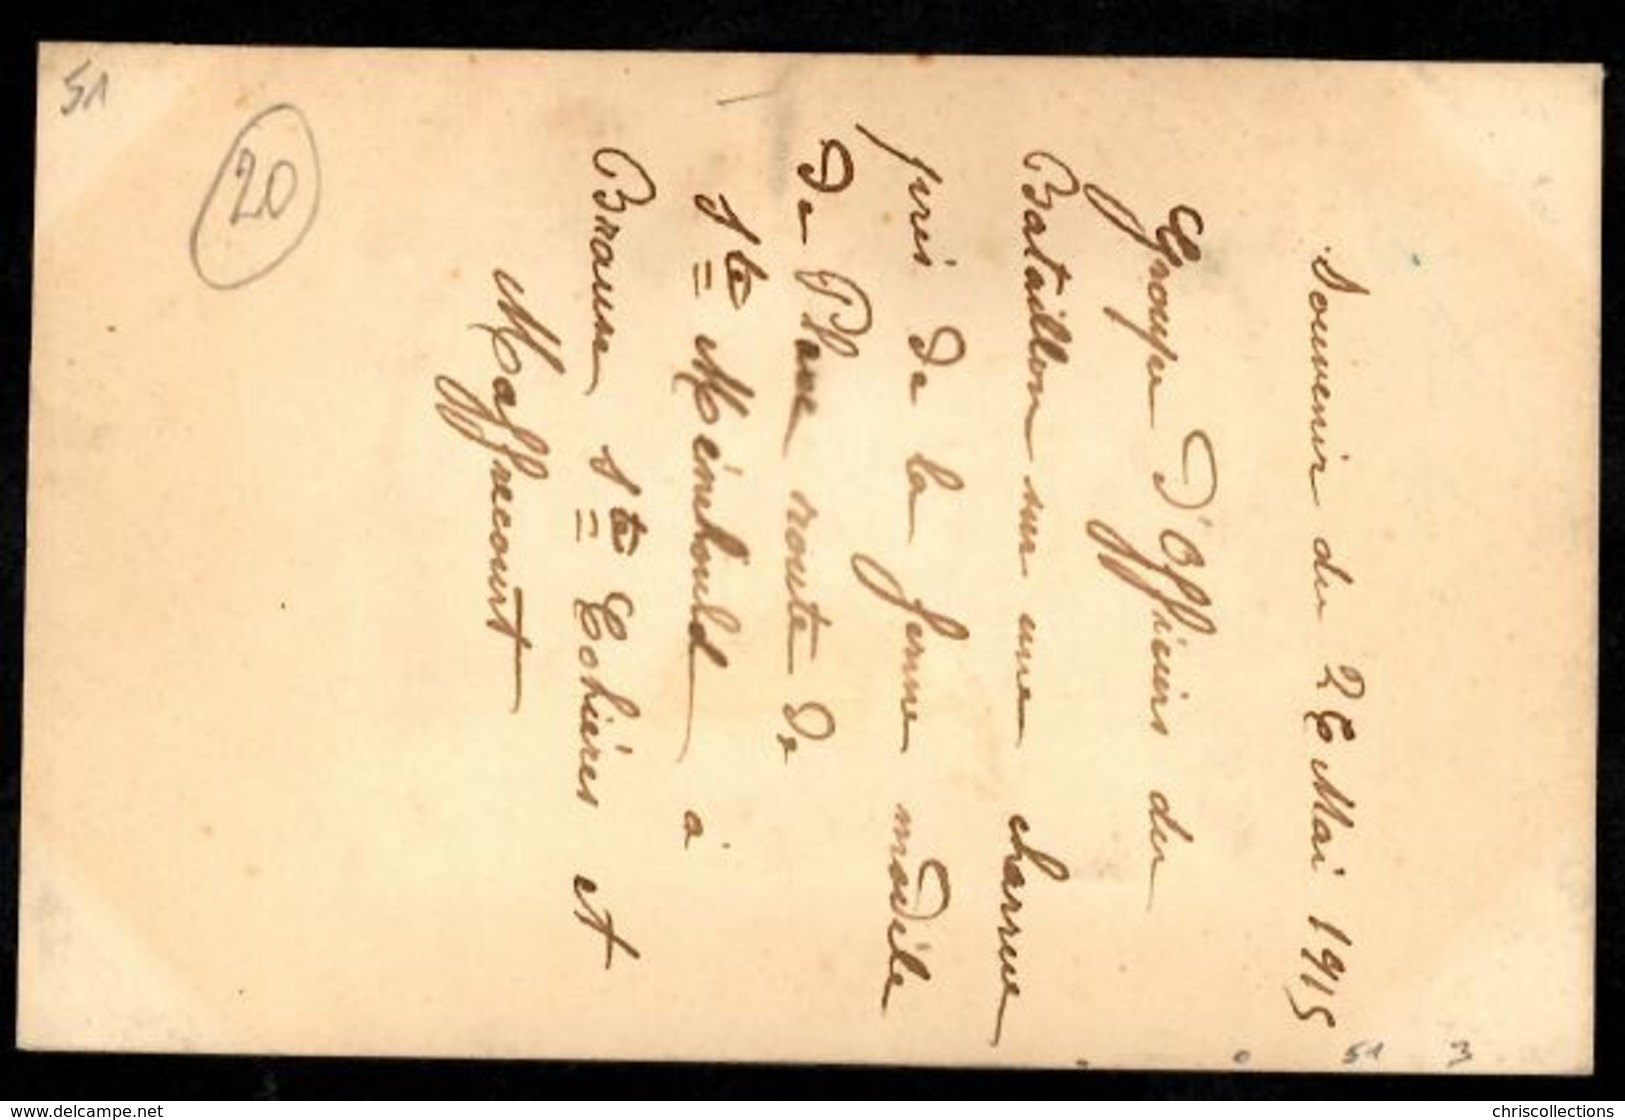 Souvenir du 26 Mai 1915
Groupe d'Officiers du
Bataillon sur une charrue
près de la ferme modèle
de Place route de
Ste Ménehould à
Braux Ste Cohières et
Maffrecourt
20
51
51
3
chriscollections